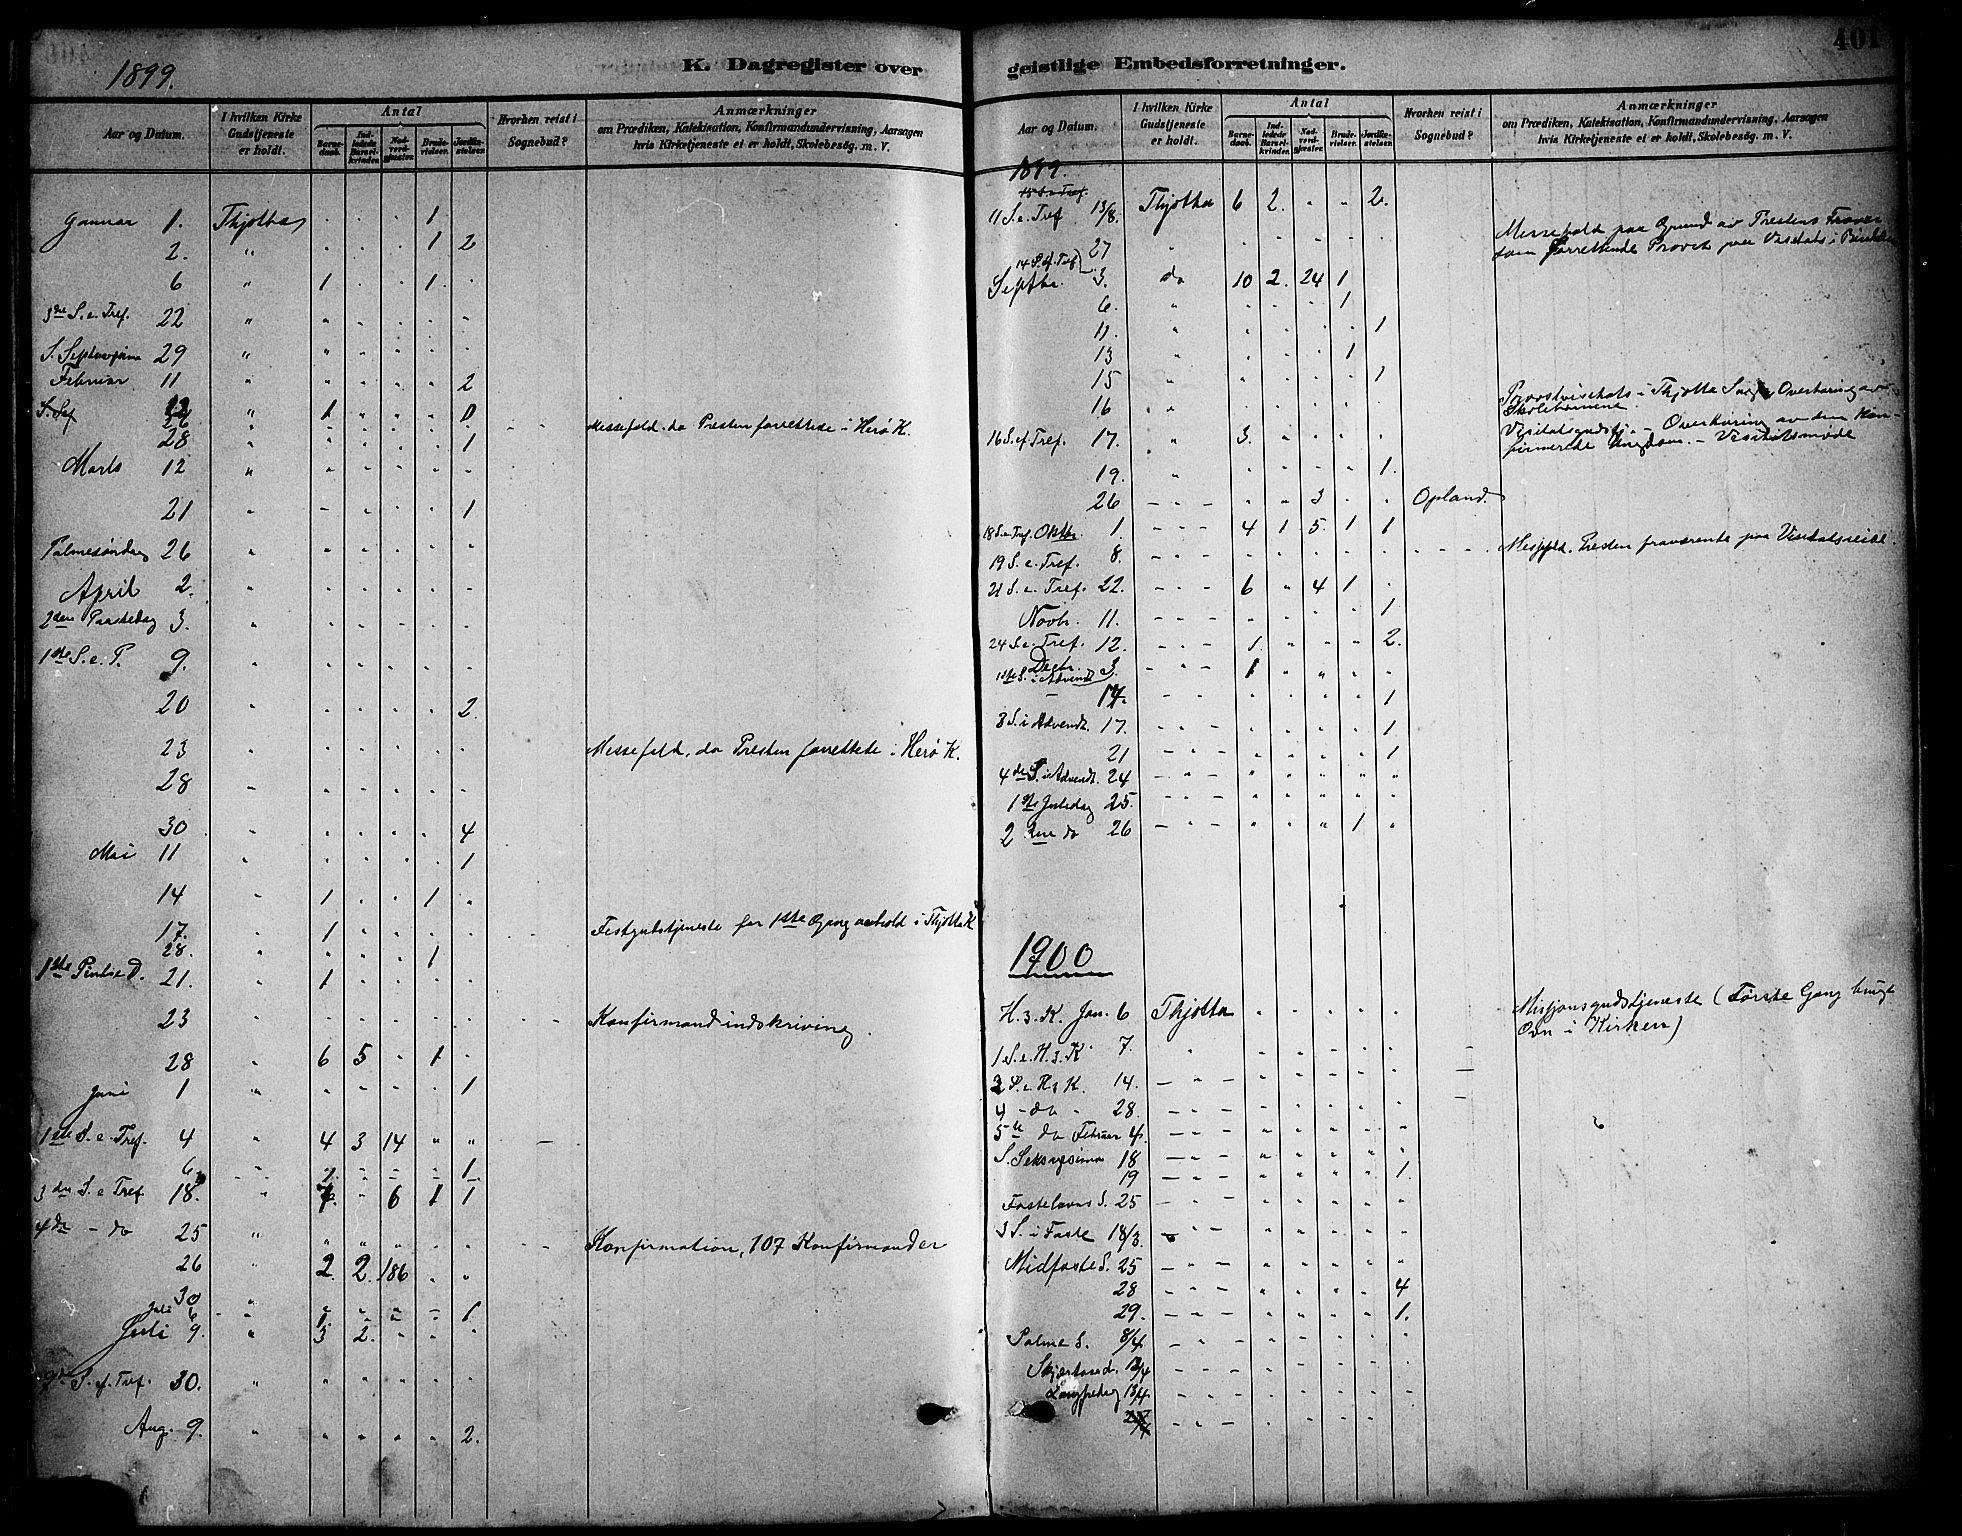 401
1899.
K. Dagregister over
Aar og Datum.
I hvilken Kirke Gudstjeneste er holdt.
Antal
Barnedaab.
Indledede Barselkvinder.
Nadverdgjester.
Brudevielser.
Jordfæstelser.
Hvorhen reist i Sognebud?
Anmærkninger
om Prædiken, Katekisation, Konfirmandundervisning, Aarsagen
hvis Kirketjeneste ei er holdt, Skolebesøg. m. V.
Januar 1. Thjøtta . . . 1
2. " . . . 1 2
6 " 1 . . 1 .
3die S. e. Tref. 22 "
S. Septuagesima 29 "
Februar 11 " 2
" 1
28 " 1 Messefald, da Presten forrettede i Herø K.
Marts 12 "
21 " 1
Palmesøndag 26 "
April 2. "
2den Paaskedag 3. "
1ste S. e. P. 9. "
20 " 2.
23 " Messefald, da Presten forrettede i Herø K.
28 "
30 " 4
Mai 11 " 1
14 " 1 . . 1 "
17. " 1 Festgudstjeneste for 1ste Gang avhold i Thjøtta K
28. " 1
1ste Pintse D. 21. " 1
23 " Konfirmandindskriving.
28 " 6 5 . 1 .
Juni 1 " 1
1ste S. e. Tref. 4 " 4 3 14 " "
6 1 1
3die S. e Tref 18. " 7. " 6 1 1
4de - do 25 "
26 " 2. 2. 186 . " Konfirmation, 107 Konfirmander
30 "
Juli 6 " 1 1
Juli 9. " 3 2.
S. e. Tref. 30. "
Aug. 9. " 2.
geistlige Embedsforretninger.
Aar og Datum.
I hvilken Kirke Gudstjeneste er holdt.
Antal
Barnedaab.
Indledede Barselkvinder.
Nadverdgjester.
Brudevielser.
Jordfæstelser.
Hvorhen reist i Sognebud?
Anmærkninger
om Prædiken, Katekisation, Konfirmandundervisning, Aarsagen
hvis Kirketjeneste ei er holdt, Skolebesøg. m. V.
1899.
11 S. e. Tref 13/8. Thjøtta 6 2. " " 2.
27 Messefald paa Grund av Prestens Fravær
som forrettende Provst paa Visitats i
14 S. e. Tref
Septbr. 3. do 10 2. 24 1.
6. " 1
11. " 1
13 " 1
15 " 1
16 " Provstvisitats i Thjøtta Overhøring av
Skolebørnene.
16 S. e. Tref. 17. " 3. Visitatsgudstj. - Overhøring av den Kon-
firmerede Ungdom. - Visitatsmøde
19. " 1.
26 - - - " " 3 . . Opland.
18 S. e. Tref. Oktbr. 1. - - - 4 1 5. 1 1
19 S. e. Tref. 8. - - - Presten fraværende paa Visitatsreise.
21 S. e. Tref. 22. - - - 6 " 4 1 .
Novbr. 11. - - - 1
24 S. e. Tref. 12. - - - 1. 2.
Decbr.
1ste S. i Advendt 3. - " - 1
- 14. 1
3 S. i Advendt. 17. - " - 1
21 1
4de S. i Advendt. 24 - " -
1ste Juledag 25. - " -
2 den do 26 - " - 1 "
1900
H. 3. K. Jan. 6 Thjøtta Misjonsgudstjeneste (Første Gang brugt
Ovn i Kirken)
1 S. e. H. 3. K. 7. "
2 S. e H 3 K. 14. - " -
4 - do - 28. - " -
5te do Februar 4. - " -
S. Seksagesima 18 - " -
19 - " - 1.
Fastelavns S. 25 - " -
3 S. i Faste 18/3.
Midfaste S. 25 - " -
28 - " - 4
29. - " - 1.
Palme S. 8/4
Skjærtorsd. 12/4
Langfredag 13/4